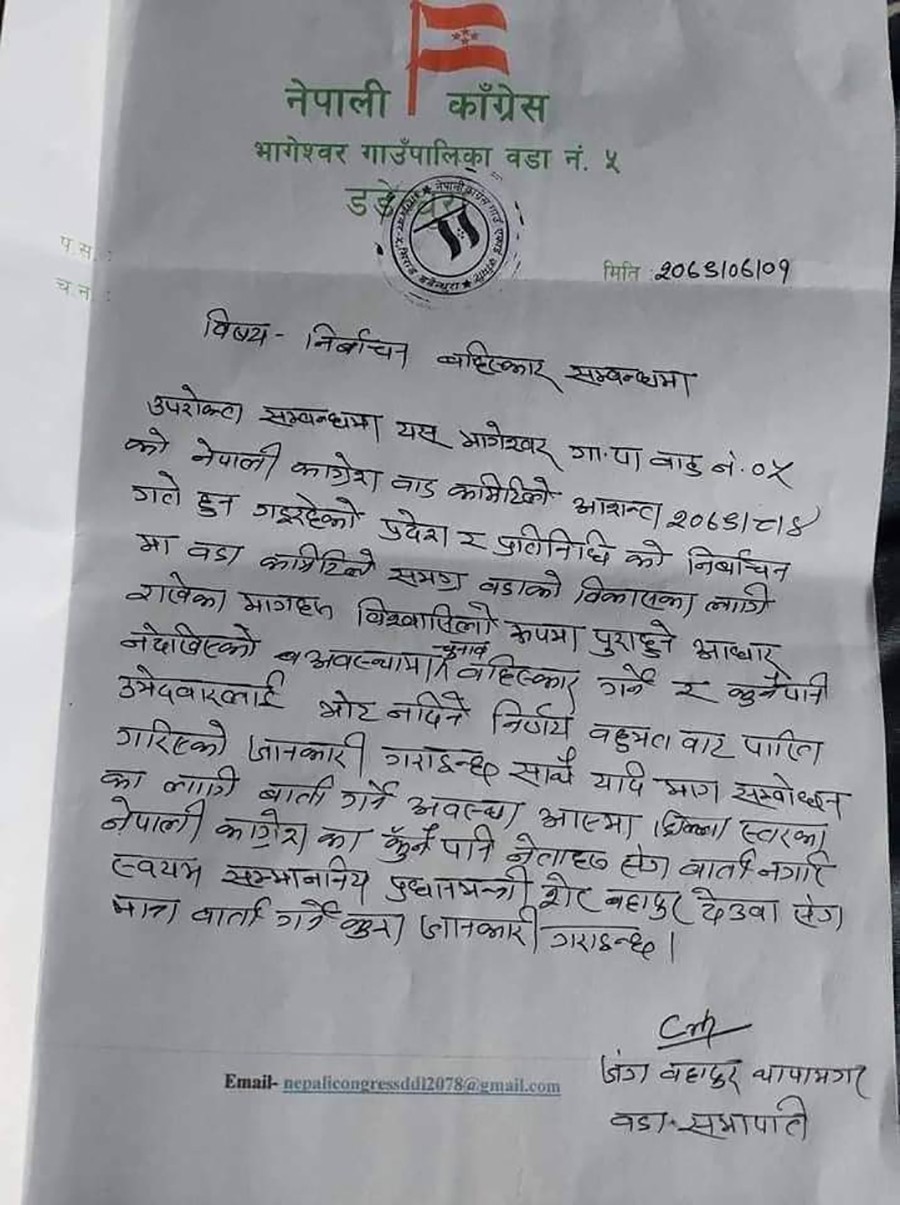 नेपाली काँग्रेस
भागेश्वर गाउँपालिका वडा नं. ५
प.स.:
च.न.:
मिति :२०७९/०७/०१
विषय- निर्वाचन बहिस्कार सम्बन्धमा
उपरोक्त सम्बन्धमा यस भागेश्वर गा.पा वाड नं.०५
को नेपाली काग्रेश वाड कमिटिले आशन्त २०७९/८/४
गते हुन गइरहेको प्रदेश र प्रतिनिधि को निर्बाचन
मा वडा कमिटिले समग्र वडाको विकासका लागि
राखेका मागहरु विश्वासिलो रूपमा पुराहुने आधार
नदेखिएको अवस्थामा चुनाव वहिस्कार गर्ने र कुनैपनी
उमेदवारलाई भोट नदिने निर्णय वहुमत वाट पारित
गरिएको जानकारी गराइन्छ साथै यदि माग सम्वोधन
का लागि बार्ता गर्ने अवस्था आएमा जिल्ला स्तरका
नेपाली काग्रेश का कुनै पनि नेताहरु संग वार्ता नगरि
स्वयम सम्माननिय प्रधानमन्त्री शेर बहादुर देउवा संग
मात्र वार्ता गर्ने कुरा जानकारी गराइन्छ।
जंग बहादुर थापामगर
वडा सभापति
Email- nepalicongressddl2078@gmail.com